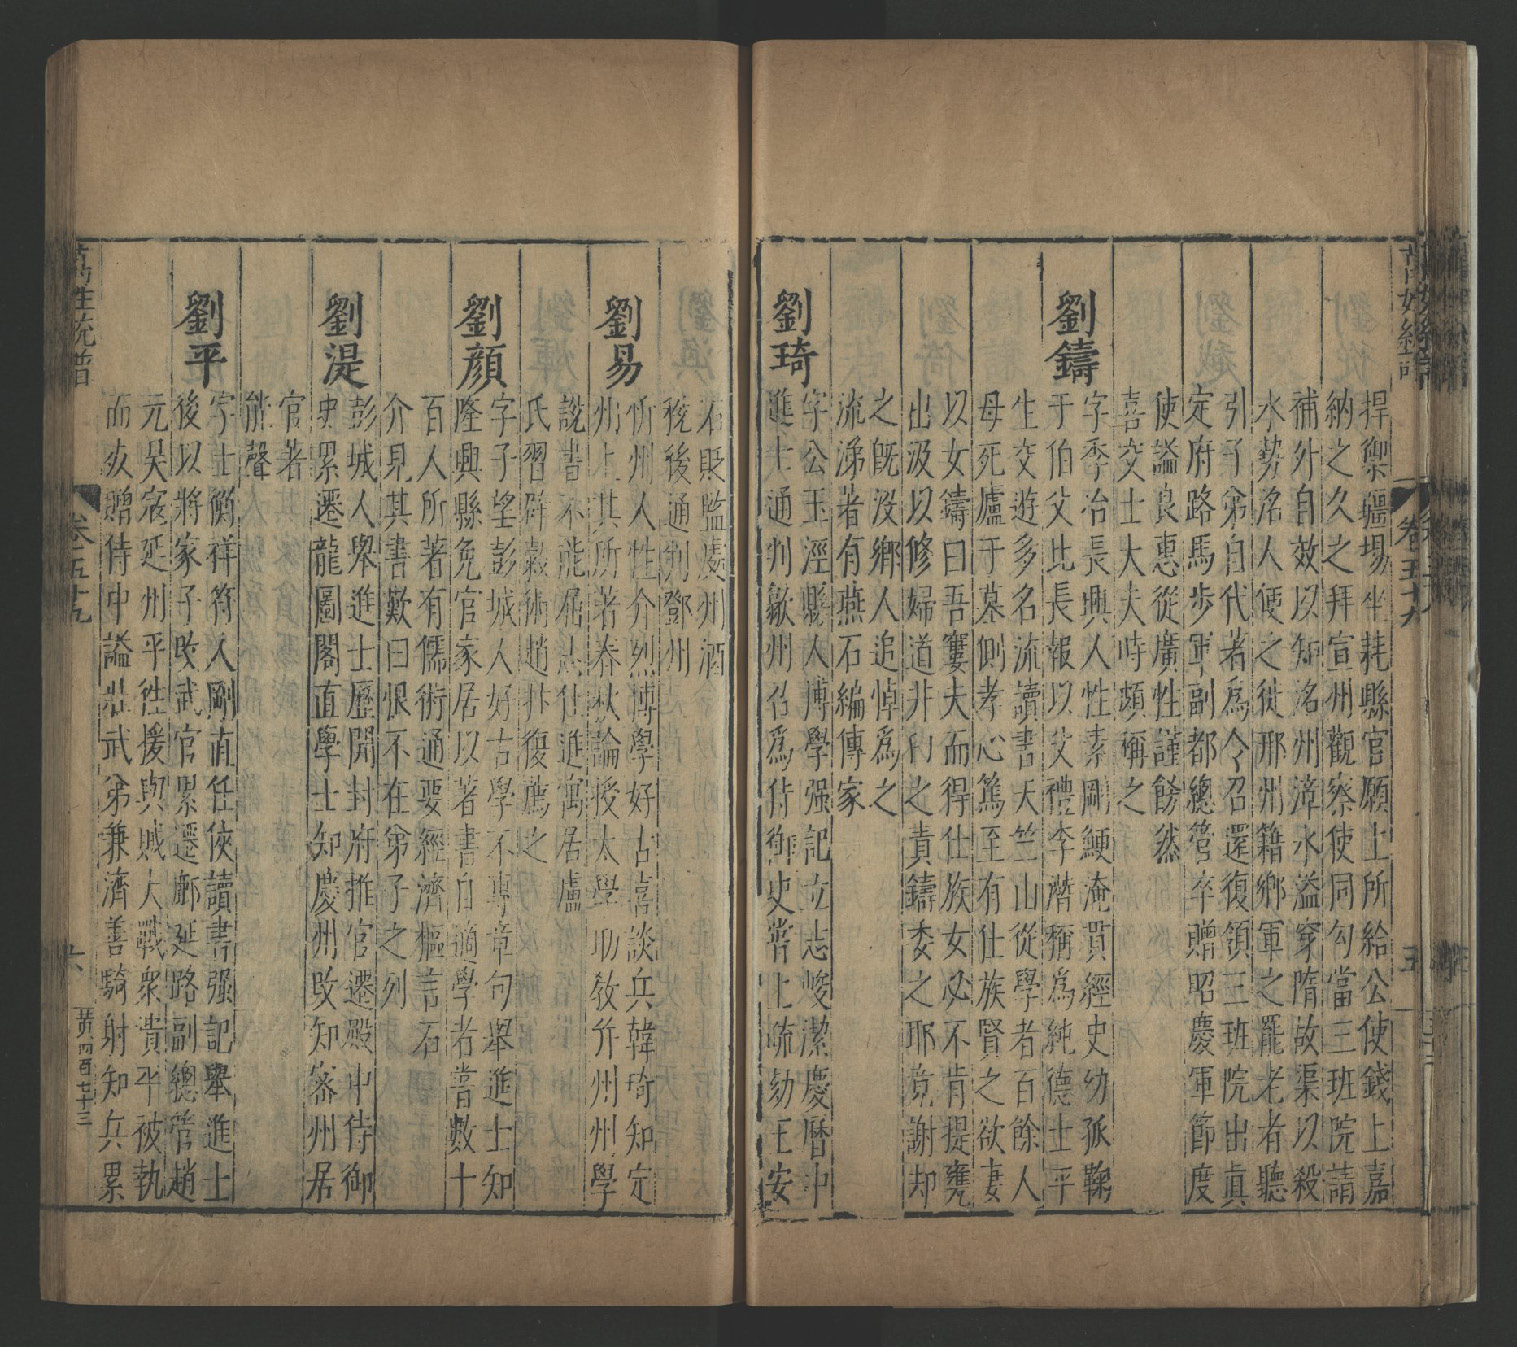 捍禦疆場坐耗縣官願上所給公使錢上嘉
納之久之拜宣州觀察使同勾當三班院請
補外自效以知洺州漳水溢穿隋故渠以殺
水勢洺人便之徙邢州籍鄉軍之罷老者聽
引子弟自代者爲令召還復領三班院出真
定府路馬步軍副都總管卒贈昭慶軍節度
使謚良惠從廣性謹飭然
喜交士大夫時頗稱之
劉鑄
字季冶長興人性素剛鯁淹貫經史幼孤鞠
于伯父比長報以父禮李濳稱爲純德士平
生交遊多名流讀書天竺山從學者百餘人
母死廬于墓側孝心篤至有仕族賢之欲妻
以女鑄曰吾寠夫而得仕族女必不肯提甕
出汲以修婦道非內之責鑄委之耶竟謝却
之旣没鄉人追悼爲之
流涕著有燕石編傳家
劉琦
字公玉涇縣人博學强記立志峻潔慶曆中
進士通判歙州召爲侍御史嘗上疏劾王安
石貶監處州酒
稅後通判鄧州
劉易
忻州人性介烈博學好古喜談兵韓琦知定
州上其所著春秋論授太學助敎幷州州學
說書不能屈志仕進寓居盧
氏習辟穀術趙抃復薦之
劉顔
字子望彭城人好古學不專章句舉進士知
隆興縣免官家居以著書自適學者嘗數十
百人所著有儒術通要經濟樞言石
介見其書歎曰恨不在弟子之列
劉湜
彭城人舉進士歷開封府推官遷殿中侍御
史累遷龍圖閣直學士知慶州改知宻州居
官著
能聲
劉平
字士衡祥符人剛直任俠讀書强記舉進士
後以將家子改武官累遷鄜延路副總管趙
元昊寇延州平徃援與賊大戰衆潰平被執
而歿贈侍中謚壯武弟兼濟善騎射知兵累
萬姓統譜
卷五十九
六